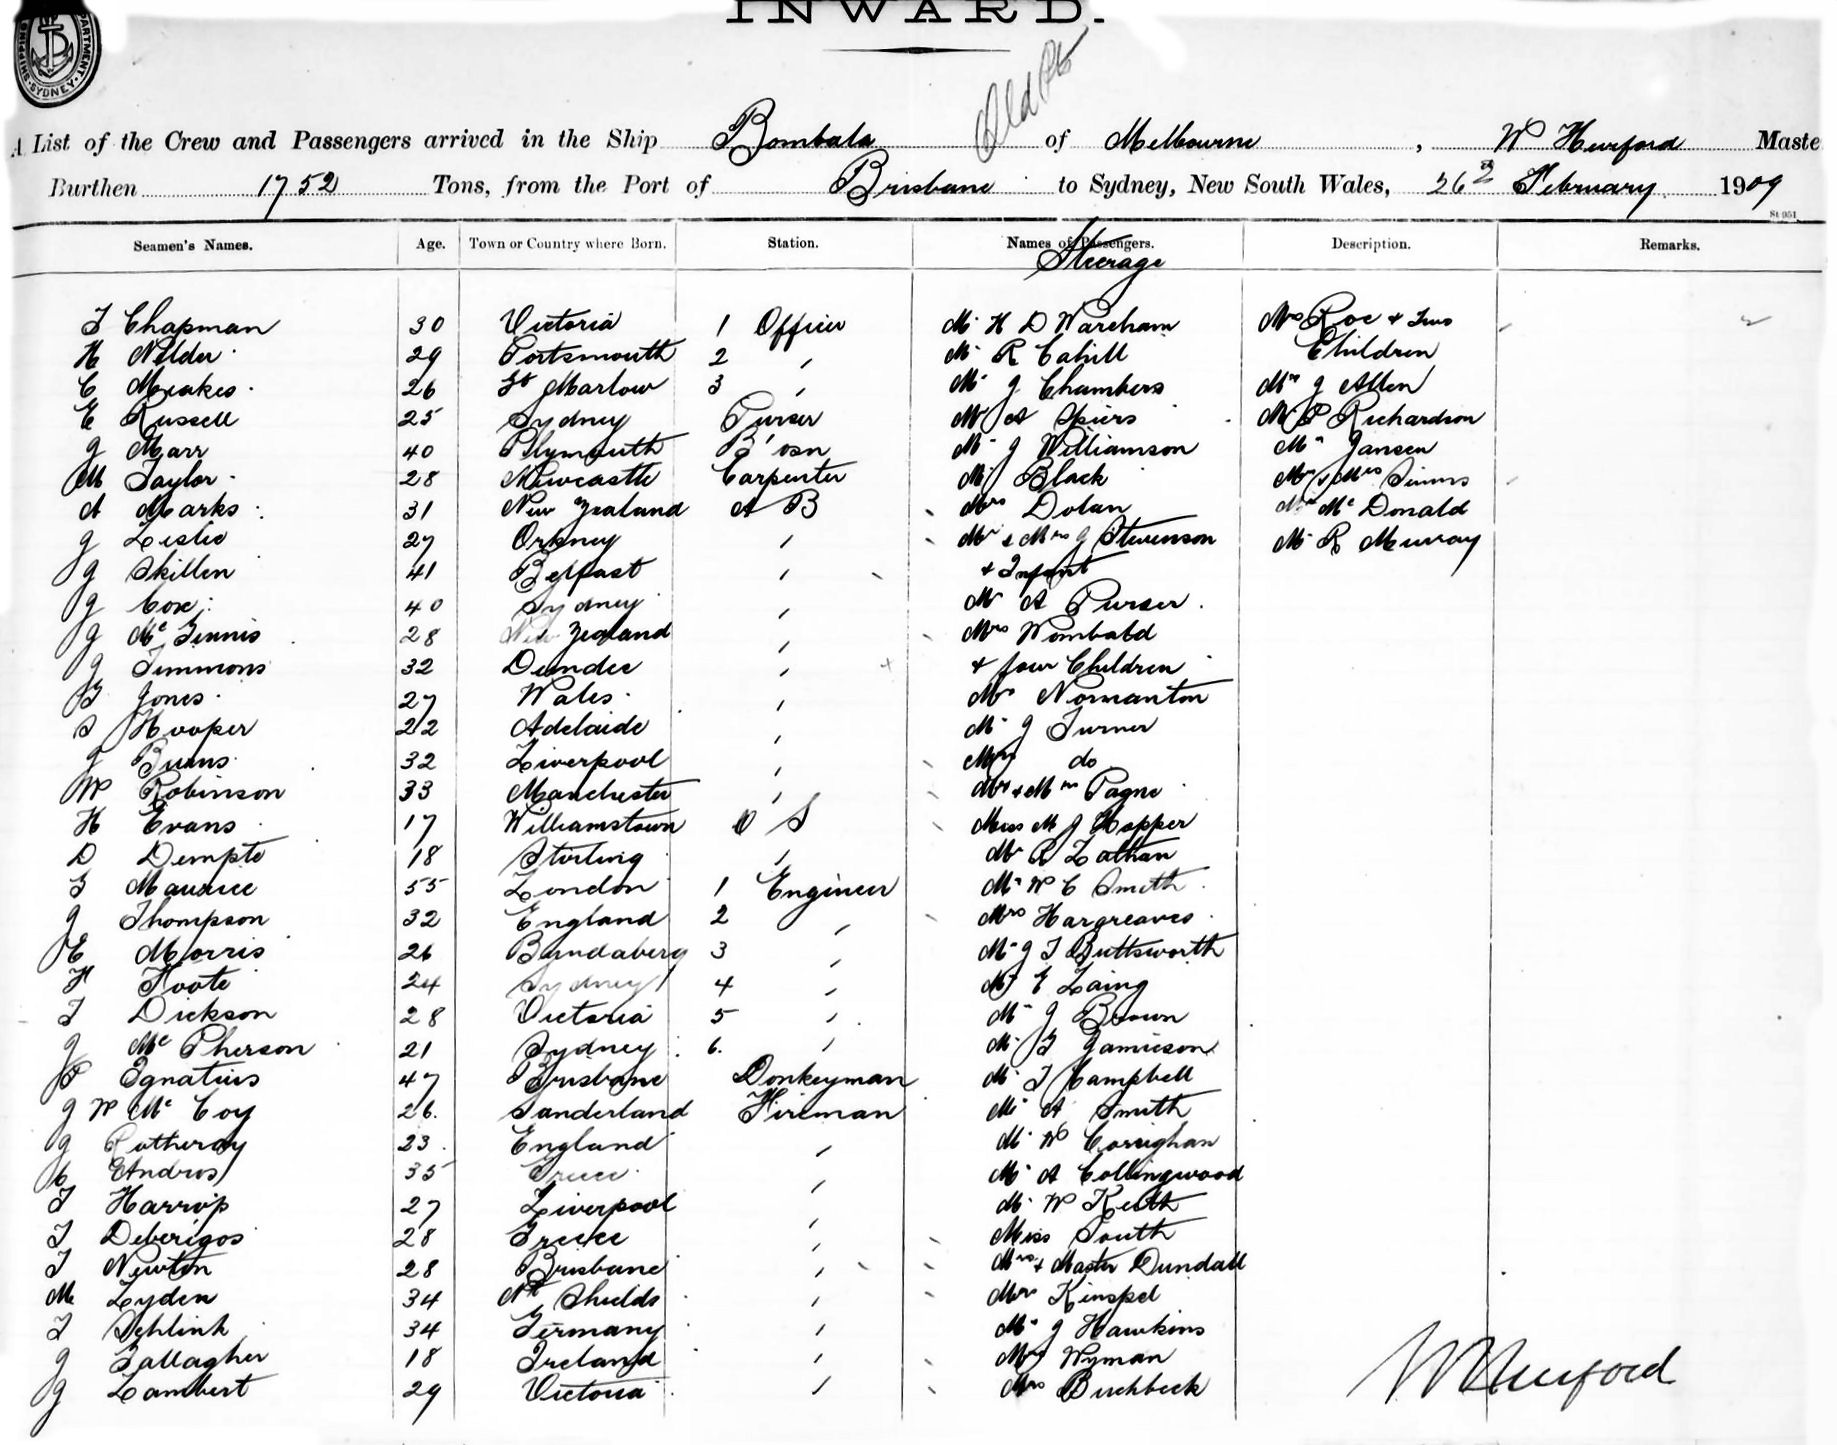 INWARD.
SHIPPING DEPARTMENT. SYDNEY.
A List of the Crew and Passengers arrived in the Ship Bombala of Melbourne, W Hurford Maste
Burthen 1752 Tons, from the Port of Brisbane to Sydney, New South Wales, 26 February 1909
St 051
Seamen's Names. Age. Town or Country where Born. Station. Names of Passengers. Description. Remarks.
Steerage
T Chapman 30 Victoria 1 Officer Mr H D Wareham Mrs Roe + Two
H Nelder 29 Portsmouth 2 " Mr R Cahill Children
C Meakes 26 Gt Marlow 3 " Mr J Chambers Mr J Allen
E Russell 25 Sydney Purser Mr A Spiers Mr P Richardson
J Marr 40 Plymouth B'osn Mr J Williamson Mr Jansen
M Taylor 28 Newcastle Carpenter Mr J Black Mr & Mrs Simms
A Marks 31 New Zealand A B Mrs Dolan Mr Mc Donald
J Leslie 27 Orkney " Mr & Mrs J Stevenson Mr R Murray
J Skillen 41 Belfast " + Infant
J Cox 40 Sydney " Mr A Purser
J Mc Ginnis 28 New Zealand " Mrs Wombald
J Simmons 32 Dundee " + four Children
G Jones 27 Wales " Mr Normanton
S Hooper 22 Adelaide " Mr J Turner
J Burns 32 Liverpool " Mrs do
W Robinson 33 Manchester " Mr + Mrs Payne
H Evans 17 Williamstown O S Miss M J Hopper
D Dempte 18 Stirling " Mr R Lathan
G Maurice 55 London 1 Engineer Mr W C Smith
J Thompson 32 England 2 " Mrs Hargreaves
E Morris 26 Bundaberg 3 " Mr J T Buttsworth
H Foote 24 Sydney 4 " Mr E Laing
T Dickson 28 Victoria 5 " Mr J Brown
J Mc Pherson 21 Sydney 6. " Mr G Jamieson
P Ignatius 47 Brisbane Donkeyman Mr T Campbell
J W Mc Coy 26. Sanderland Fireman Mr A Smith
J Rotheray 23 England " Mr W Corrighan
C Andros 35 Greece " Mr A Collingwood
T Harrop 27 Liverpool " Mr W Keith
T Deberigos 28 Greece " Miss South
T Newton 28 Brisbane " Mrs + Master Dundall
M Lyden 34 Nth Shields " Mrs Kinspel
T Schlink 34 Germany " Mr J Hawkins
J Gallagher 18 Ireland " Mrs Wyman
J Lambert 29 Victoria " Mrs Buchbeck
W Hurford